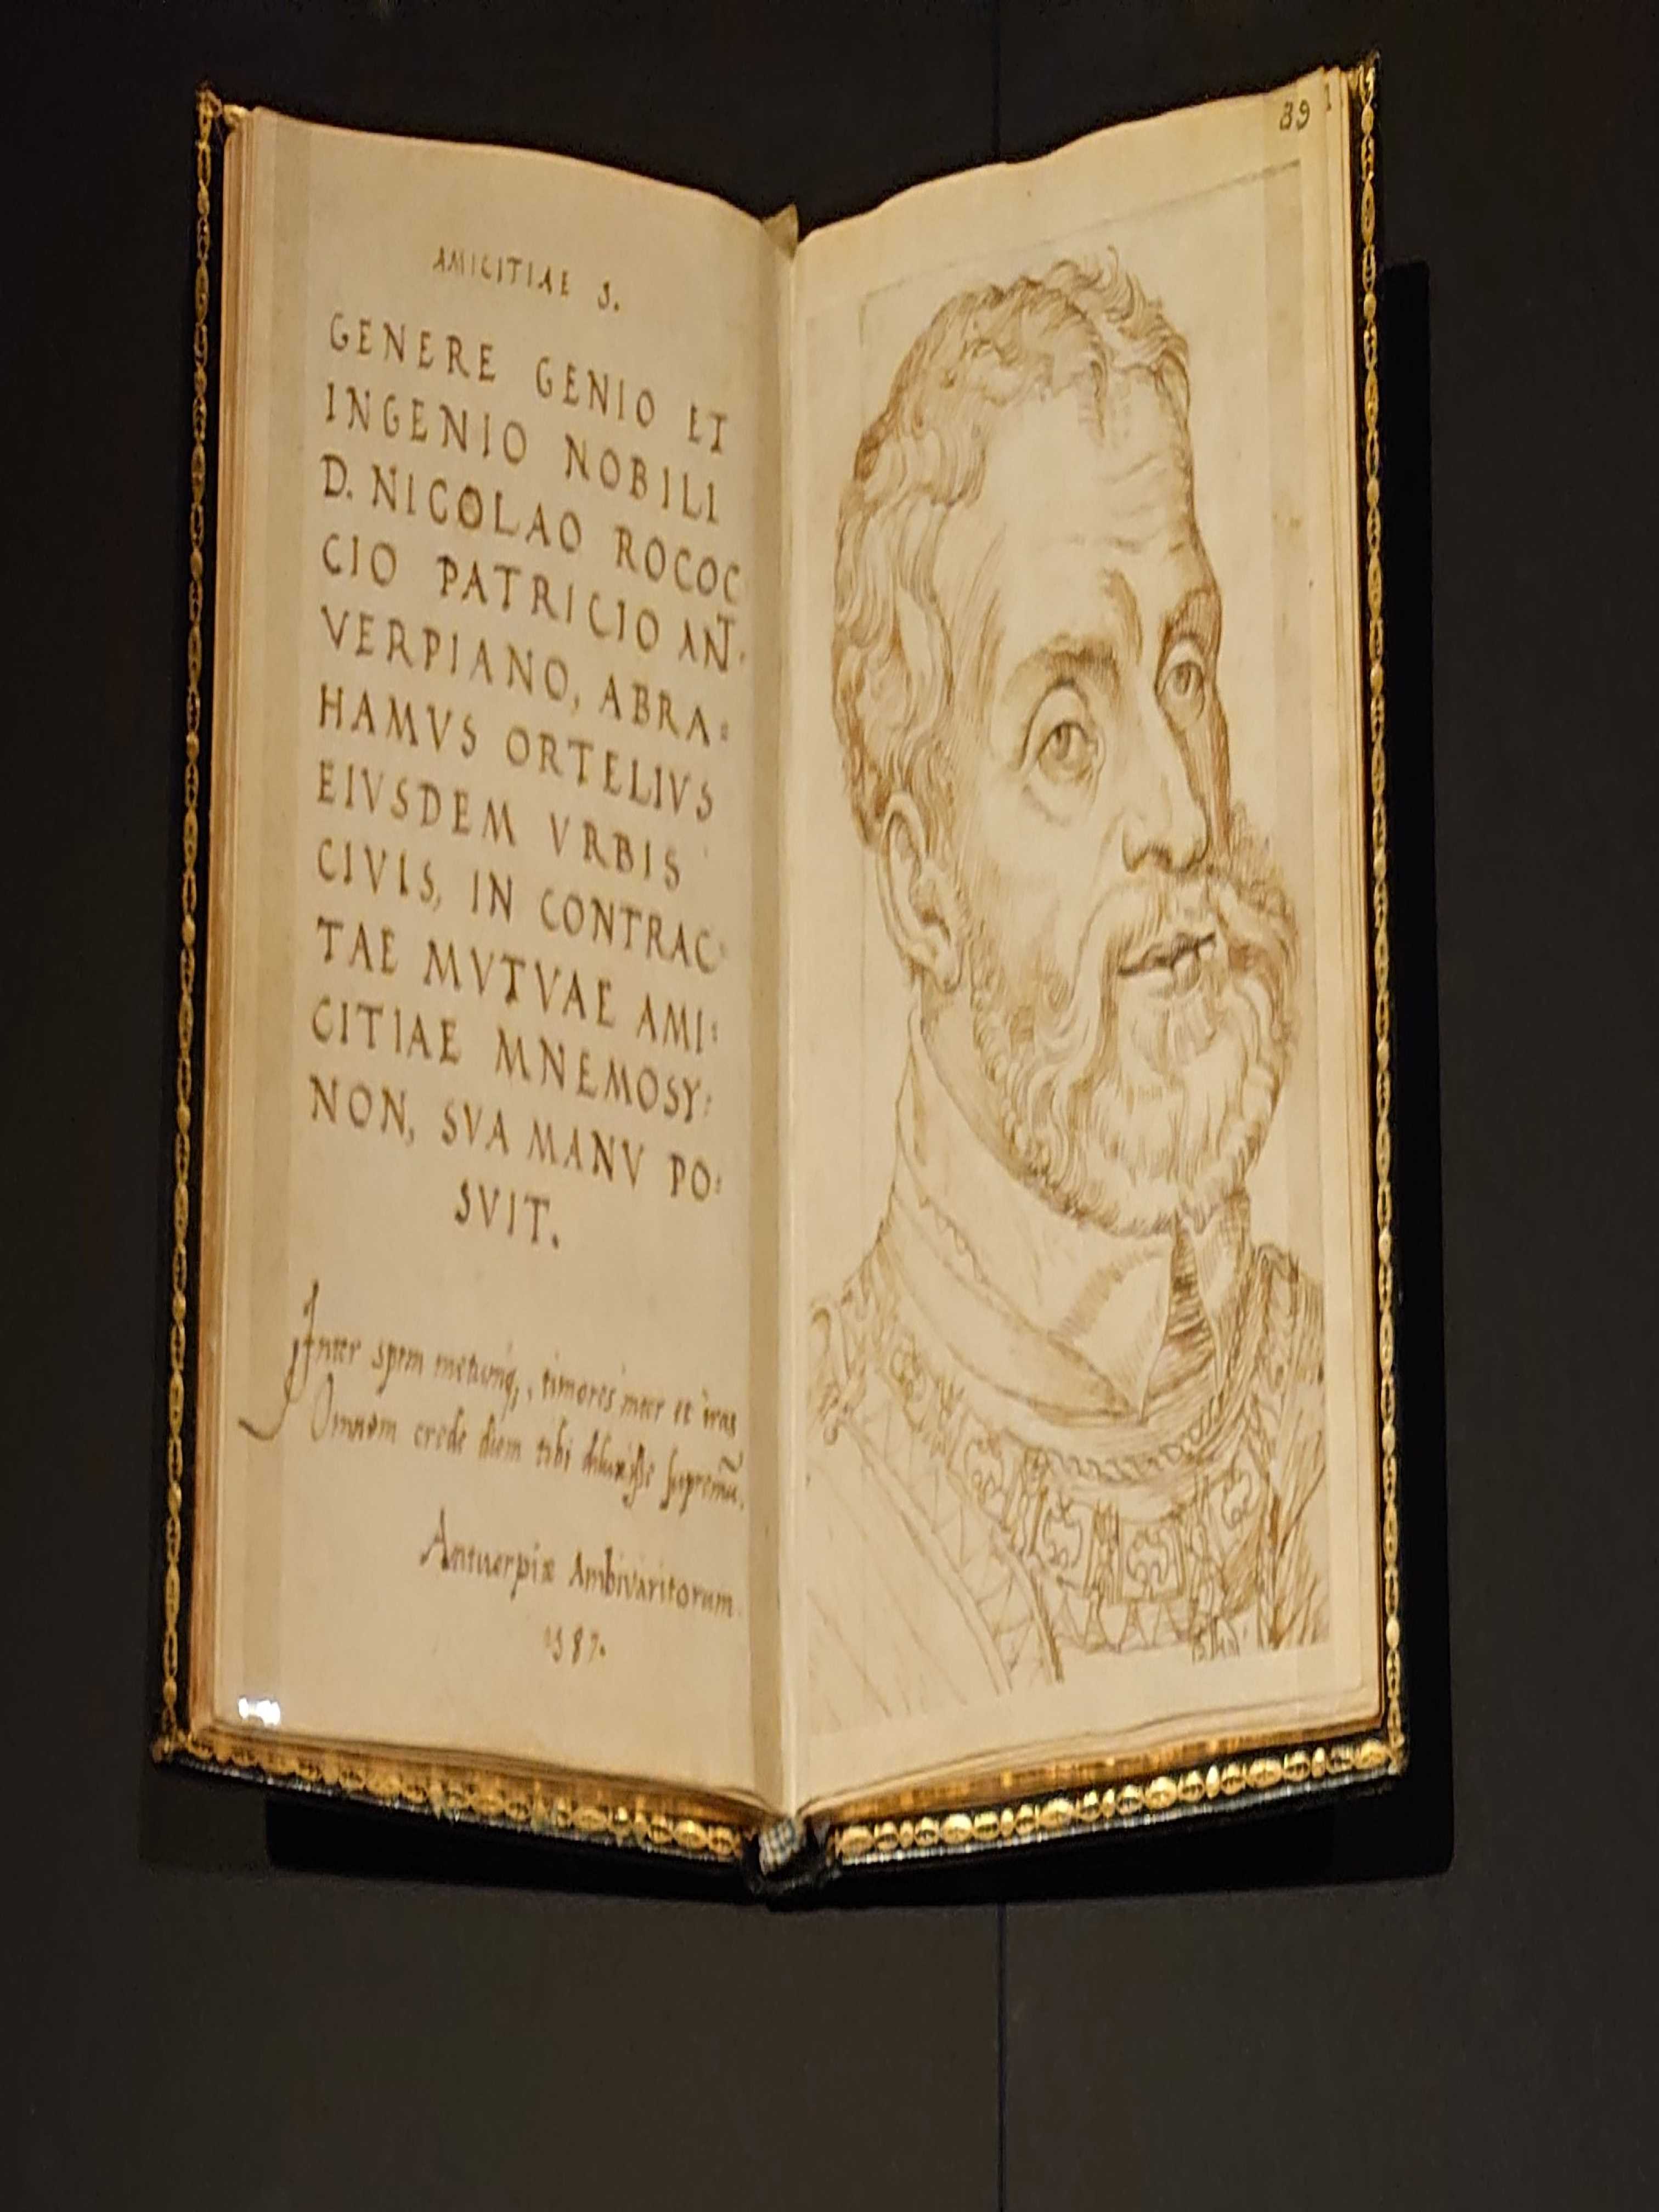 AMICITIAE S.
GENERE GENIO ET
INGENIO NOBILI
D. NICOLAO ROCOC
CIO PATRICIO ANT·
VERPIANO, ABRA:
HAMVS ORTELIVS
EIVSDEM VRBIS
CIVIS, IN CONTRAC:
TAE MVTVAE AMI:
CITIAE MNEMOSY:
NON, SVA MANV PO:
SVIT.
Inter spem metumq, timores inter et iras
Omnem crede diem tibi diluxisse supremũ.
Antuerpiæ Ambivaritorum
1587.
89